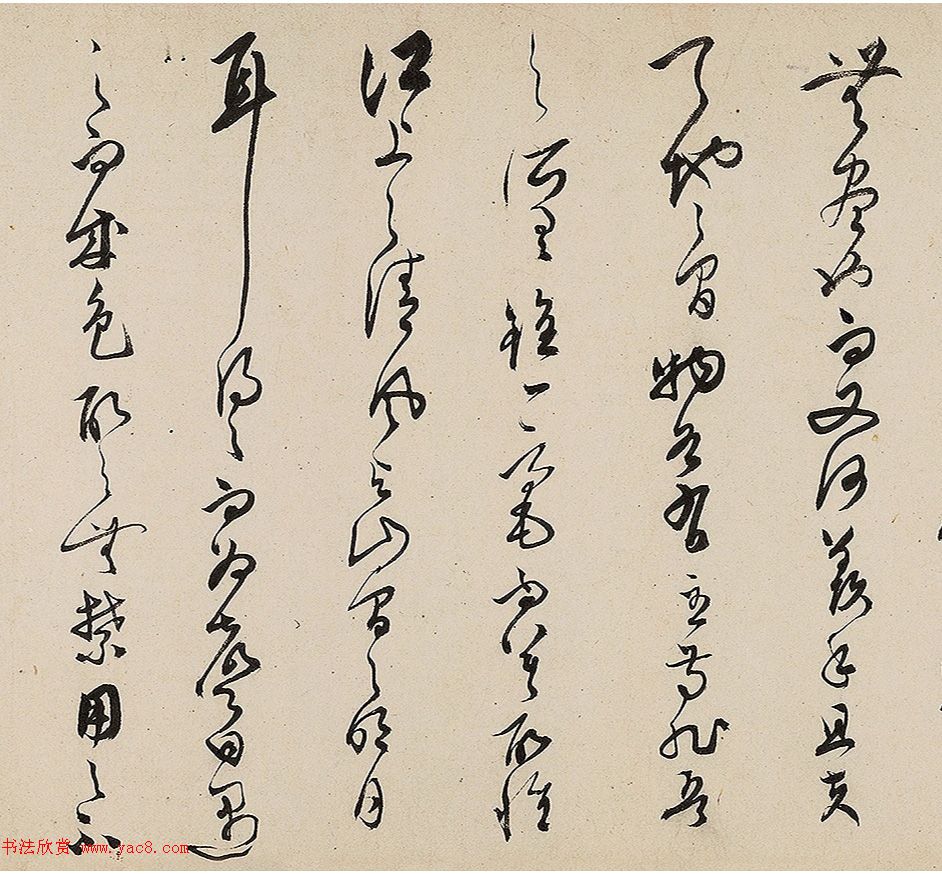 無盡也而又何羨乎且夫
天地之間物各有主苟非吾
之所有雖一毫而莫取惟
江上之清風與山間之明月
耳得之而為聲目遇
之而成色取之無禁用之不
书法欣赏 www.yac8.com